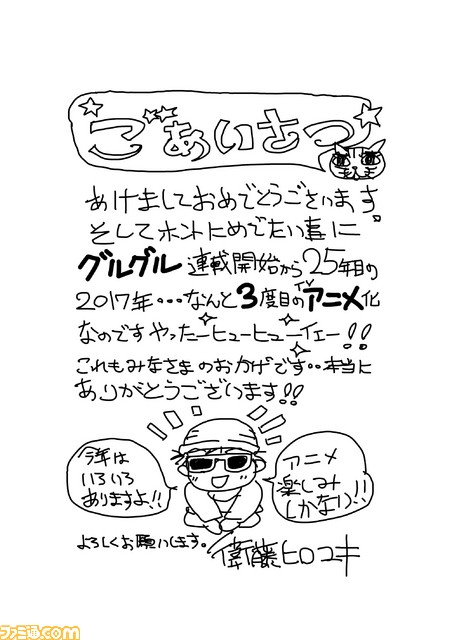 ごあいさつ
あけましておめでとうございます。
そしてホントにめでたい事に
グルグル連載開始から25年目の
2017年・・・なんと3度目のTVアニメ化
なのですやったーヒューヒューイェー!!
これもみなさまのおかげです・・本当に
ありがとうございます!!
今年は
いろいろ
ありますよ!!
アニメ
楽しみ
しかない!!
よろしくお願いします。
衛藤ヒロユキ
ファミ通.com